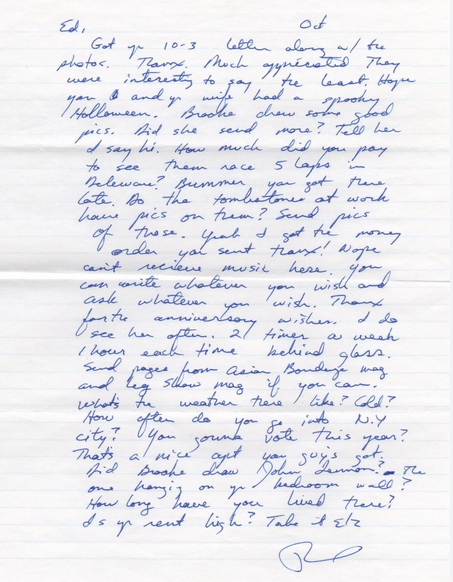 Ed, Oct
Got yr 10-3 letter along w/ the
photos. Thanx. Much appreciated They
were interesting to say the least. Hope
you & and yr wife had a spooky
Holloween. Brooke drew some good
pics. Did she send more? Tell her
I say hi. How much did you pay
to see them race 5 laps in
Deleware? Bummer you got there
late. Do the tombstones at work
have pics on them? Send pics
of those. Yeah I got the money
order you sent thanx! Nope
can't recieve music here. You
can write whatever you wish and
ask whatever you wish. Thanx
for the anniversary wishes. I do
see her often. 2 times a week
1 hour each time behind glass.
Send pages from Asian Bondage mag
and Leg Show mag if you can.
Whats the weather there like? Cold?
How often do you go into N.Y
city? You gonna vote this year?
Thats a nice apt you guys got.
Did Brooke draw John Lennon? - The
one hanging on yr bedroom wall?
How long have you lived there?
Is yr rent high? Take it EZ